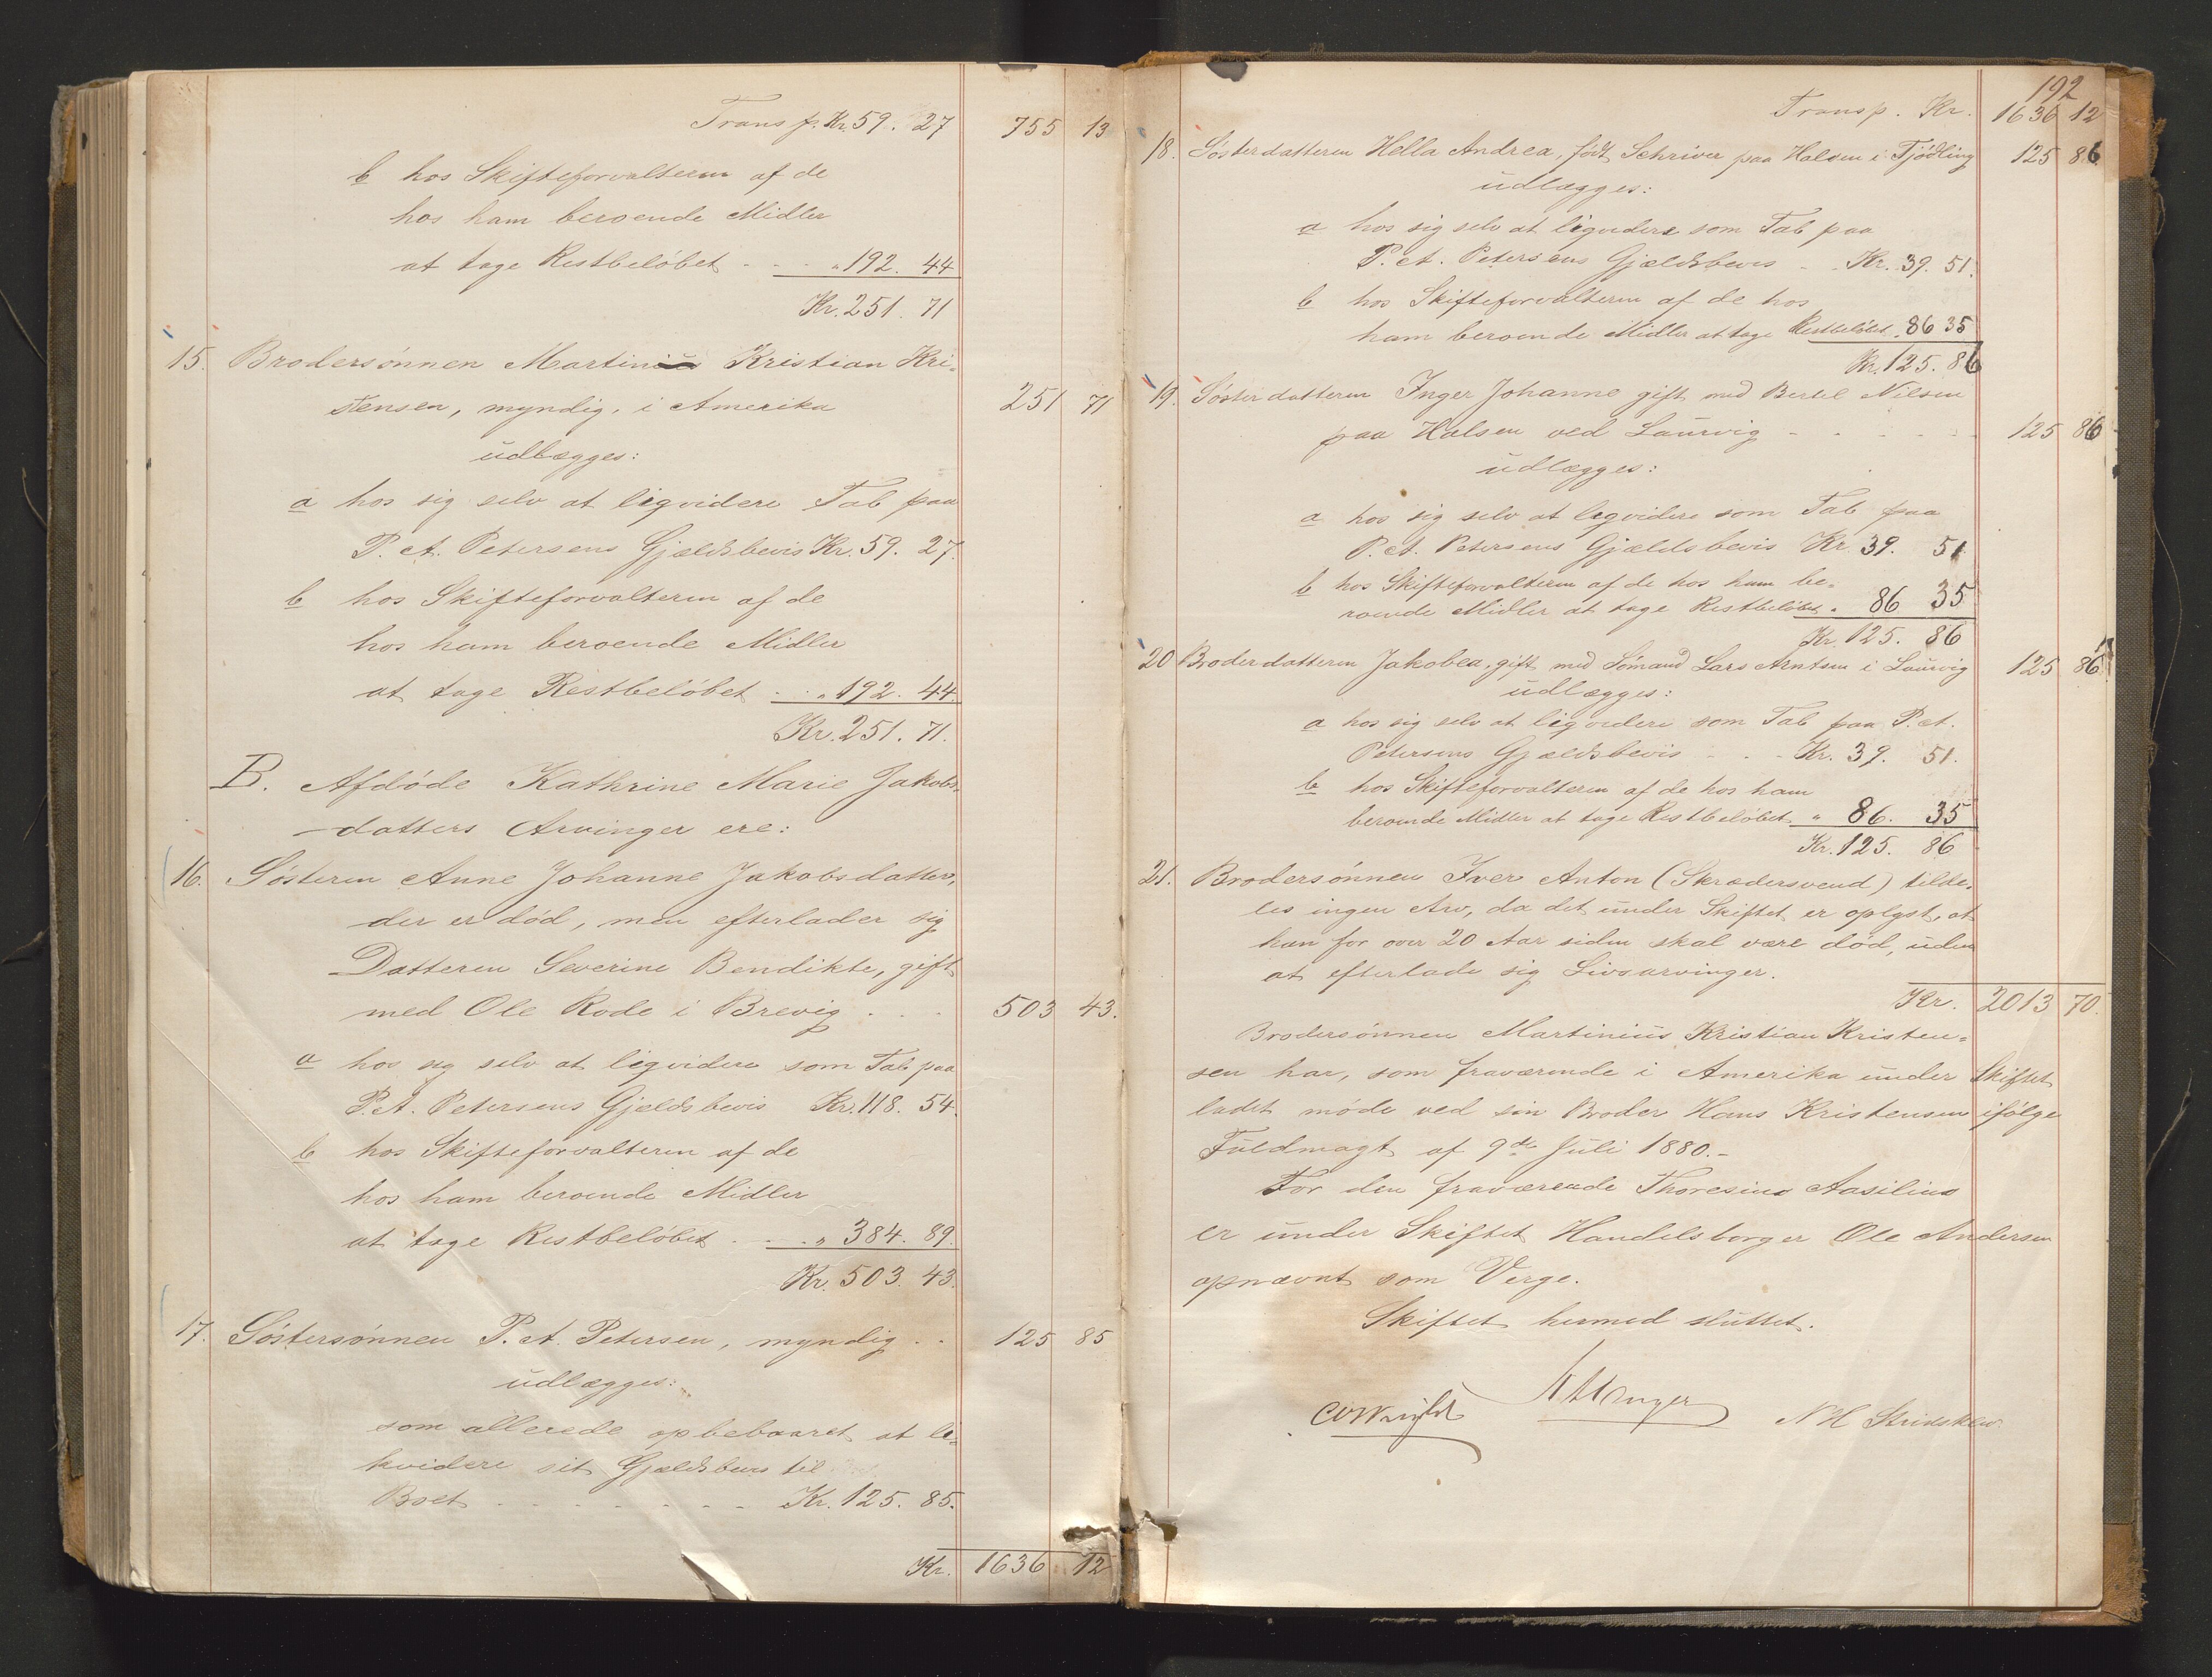 Transp. Kr. 59. 27 755 13
b hos Skifteforvalteren af de
hos ham beroende Midler
at tage Restbeløbet - - - „ 192. 44
Kr. 251. 71
15. Brodersønnen Martinius Kristian Kri-
stensen, myndig, i Amerika 251 71
udlægges:
a hos sig selv at liqvidere Tab paa
P. A. Petersens Gjældsbevis Kr. 59. 27.
b hos Skifteforvalteren af de
hos ham beroende Midler
at tage Restbeløbet - - „ 192. 44.
Kr. 251. 71.
B. Afdøde Kathrine Marie Jakobs-
datters Arvinger ere:
16. Søsteren Anne Johanne Jakobsdatter,
der er død, men efterlader sig
Datteren Severine Bendikte, gift
med Ole Rode i Brevig . . . 503 43.
a hos sig selv at liqvidere som Tab paa
P. A. Petersens Gjældsbevis Kr. 118. 54.
b hos Skifteforvalteren af de
hos ham beroende Midler
at tage Restbeløbet - - - „ 384. 89.
Kr. 503. 43.
17. Søstersønnen P. A. Petersen, myndig . . 125 85
udlægges:
som allerede opbebaaret at li-
kvidere sit Gjældsbevis til
Boet - - - - - - - Kr. 125. 85.
Kr. 1636 12
192
Transp. Kr. 1636 12
18. Søsterdatteren Hella Andrea, født Schriver paa Halsen i Tjødling 125 86
udlægges:
a hos sig selv at liqvidere som Tab paa
P. A. Petersens Gjældsbevis - . Kr. 39. 51.
b hos Skifteforvalteren af de hos
ham beroende Midler at tage Restbeløbet „ 86 35
Kr. 125. 86
19. Søsterdatteren Inger Johanne gift med Bertel Nilsen
paa Halsen ved Laurvig - - - - - 125 86
udlægges:
a hos sig selv at liqvidere som Tab paa
P. A. Petersens Gjældsbevis Kr. 39. 51.
b hos Skifteforvalteren af de hos ham be-
roende Midler at tage Restbeløbet „ 86 35
Kr. 125. 86
20 Broderdatteren Jakobea, gift med Sømand Lars Arntsen i Laurvig 125 86
udlægges:
a hos sig selv at liqvidere som Tab paa P. A.
Petersens Gjældsbevis - . - Kr. 39. 51.
b hos Skifteforvalteren af de hos ham
beroende Midler at tage Restbeløbet „ 86. 35
Kr. 125. 86
21. Brodersønnen Iver Anton (Skrædersvend) tilde-
les ingen Arv, da det under Skiftet er oplyst, at
han for over 20 Aar siden skal være død, uden
at efterlade sig Livsarvinger.
Kr. 2013 70.
Brodersønnen Martinius Kristian Kristen-
sen har, som fraværende i Amerika under Skiftet
ladet møde ved sin Broder Hans Kristensen ifølge
Fuldmagt af 9de Juli 1880.-
For den fraværende Thoresine Aasiline
er under Skiftet Handelsborger Ole Andersen
opnævnt som Verge.
Skiftet hermed sluttet.
N H